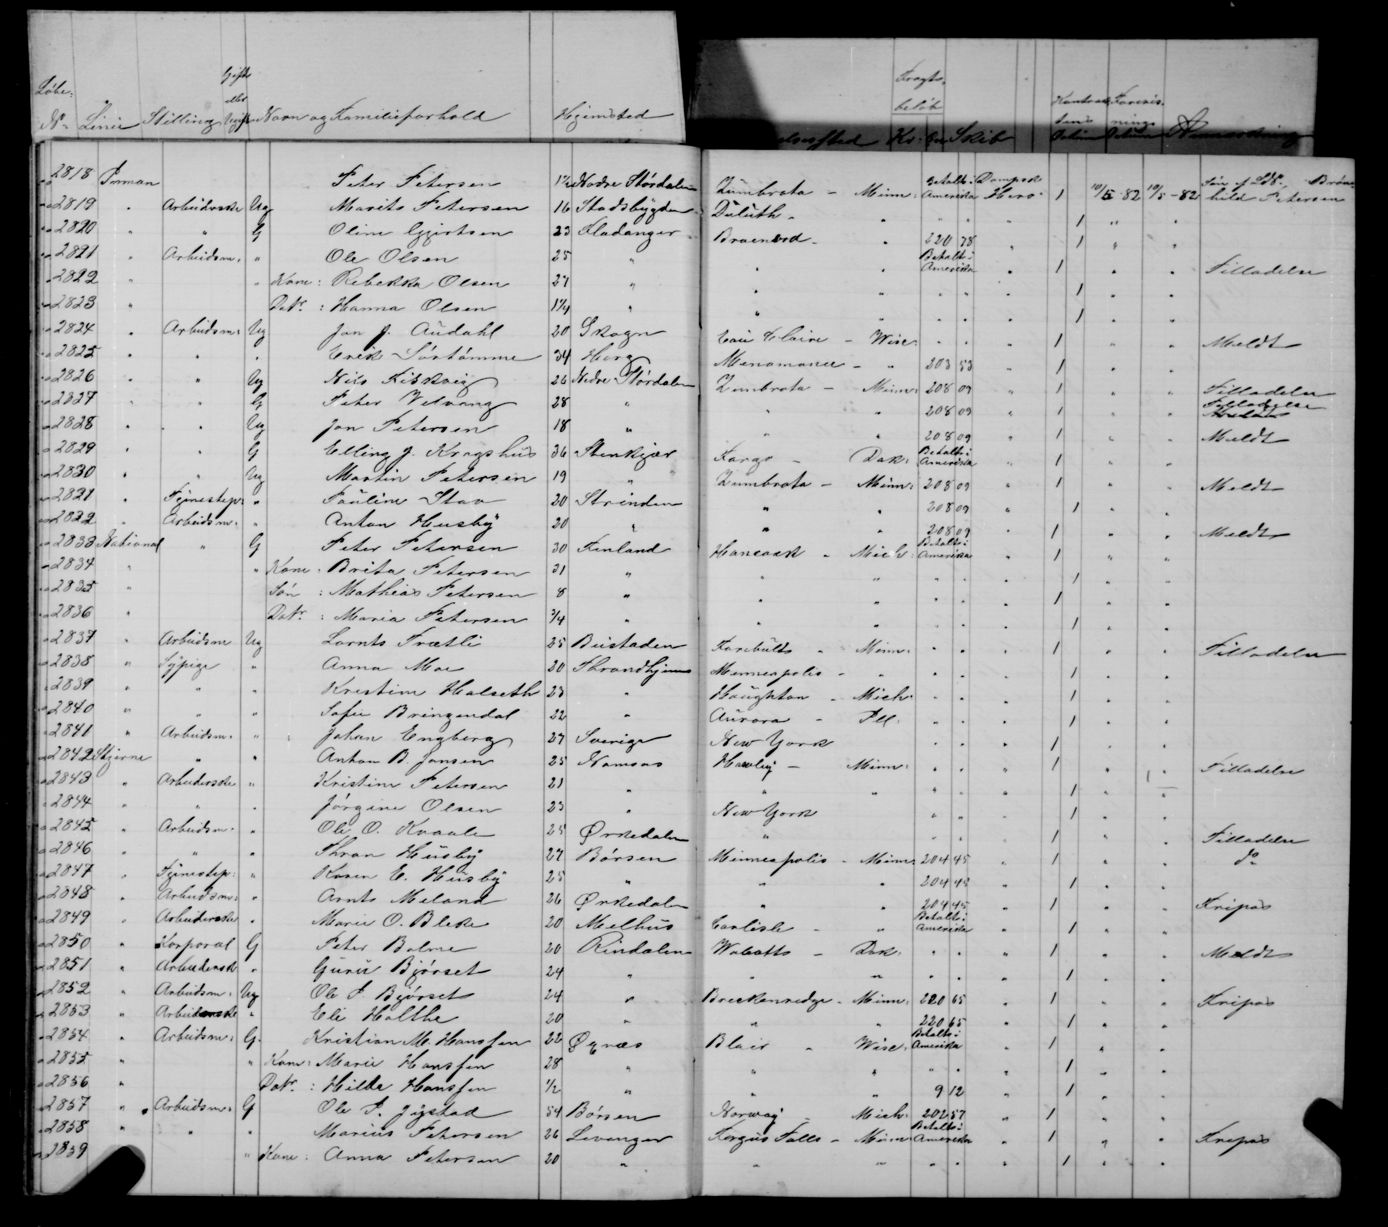 Løbe- Gifte Fragt-
eller beløb Kontrac- Forevis-
No Linie Stilling Ugifte Navn og Familieforhold Hjemsted Kr. Skib Datum Datum Anmærkning
2818 Inman Peter Petersen 1½ Nedre Størdalen Zumbrota - Minn: Betalt i Amerika Dampsk Hero 1 10/5 82 10/5 -82 Petersen
2819 " Arbeiderske Ug Marits Petersen 16 Stadsbygden Duluth - " " " 1 " "
2820 " " G Oline Gjertsen 23 Fladanger Brainerd - " 220 78 " 1 " "
2821 " Arbeidsm: " Ole Olsen 25 " " " Betalt i Amerika " 1 " " Tilladelse
2822 " " Kone: Rebekka Olsen 27 " " " " " " 1 " "
2823 " Datr: Hanna Olsen 1¼ " " " " " " 1 " "
2824 " Arbeidsm: Ug Jon J. Audahl 20 Skogn Eau Claire - Wisc: " " " 1 " " Meldt
2825 " " " Erik Sørtømme 34 Horg Menomonee - " 203 53 " 1 " "
2826 " " Ug Nils 26 Nedre Størdalen Zumbrota - Minn: 208 09 " 1 " " Tilladelse
2827 " " G Peter Vetvang 28 " " " 208 09 " 1 " " Tilladelse
2828 " " Ug Jon Petersen 18 " " " 208 09 " 1 " " Meldt
2829 " " G Elling J. Krogshus 36 Stenkjær Fargo - Dak: Betalt i Amerika " 1 " "
2830 " " Ug Martin Petersen 19 " Zumbrota - Minn: 208 09 " 1 " " Meldt
2831 " Tjenestep: " Pauline Stav 20 Strinden " " 208 09 " 1 " "
2832 " Arbeidsm: " Anton Husby 20 " " " 208 09 " 1 " " Meldt
2833 National " G Peter Petersen 30 Finland Hancock - Mich: Betalt i Amerika " 1 " "
2834 " " Kone: Brita Petersen 31 " " " " " " 1 " "
2835 " Søn: Mathias Petersen 8 " " " " " " 1 " "
2836 " Datr: Maria Petersen ¾ " " " " " " 1 " "
2837 " Arbeidsm Ug Lornts Trætli 25 Beitstaden Faribult - Minn: " " " 1 " " Tilladelse
2838 " Sypige " Anna Moe 20 Throndhjem Minneapolis - " " " " 1 " "
2839 " " " Kristine Halseth 23 " Haughton - Mich: " " " 1 " "
2840 " " " Sofie Bringendal 22 " Aurora - Ill: " " " 1 " "
2841 " Arbeidsm: " Johan Engberg 27 Sverige New York " " " 1 " "
2842 Stjerne " " Anton B. Jensen 25 Namsos Hawley - Minn: " " " 1 " " Tilladelse
2843 " Arbeiderske " Kristine Petersen 21 " " " " " " 1 " "
2844 " " " Jørgine Olsen 23 " New York " " " 1 " "
2845 " Arbeidsm: " Ole O. Kvaale 25 Ørkedalen " " " " 1 " " Tilladelse
2846 " " " Thron Husby 27 Børsen Minneapolis - Minn: 204 45 " 1 " " do
2847 " Tjenestep: " Karen E. Husby 25 " " " 204 45 " 1 " "
2848 " Arbeidsm: " Arnts Meland 26 Ørkedalen " " 204 45 " 1 " " Fripas
2849 " Arbeiderske " Marie O. Blekе 20 Melhus Carlisle - " Betalt i Amerika " 1 " "
2850 " Korporal G Peter Bolme 20 Rindalen Wolcotts - Dak: " " " 1 " " Meldt
2851 " Arbeidersk " Guru Bjørset 24 " " " " " " 1 " "
2852 " Arbeidsm: Ug Ole P. Bjørset 24 " Breckenredge - Minn: 220 65 " 1 " " Fripas
2853 " Arbeiderske " Eli Holthe 20 " " " 220 65 " 1 " "
2854 " Arbeidsm: G. Kristian M. Hanssen 22 Blair - Wisc: Betalt i Amerika " 1 " "
2855 " " Kone: Marie Hanssen 28 " " " " " " 1 " "
2856 " Datr: Hilda Hanssen ½ " " " 9 12 " 1 " "
2857 " Arbeidsm: G Ole P. Jystad 54 Børsen Norway - Mich: 202 57 " 1 " "
2858 " " " Marius Petersen 26 Levanger Fergus Falls - Minn: Betalt i Amerika " 1 " " Fripas
2859 " Kone: Anna Petersen 20 " " " " " " 1 " "